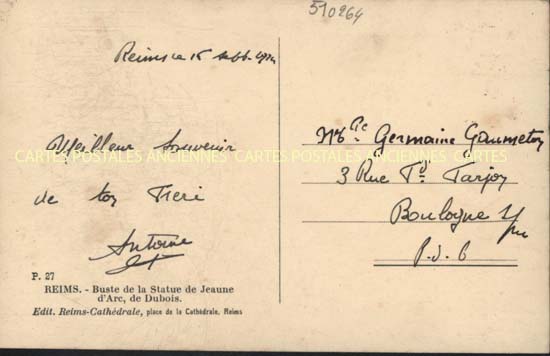 510264
Reims le 15 sept.
Meilleur souvenir
de ton
Antoine
Mlle Germaine
3 Rue
Boulogne s/
P. d. C
CARTES POSTALES ANCIENNES CARTES POSTALES ANCIENNES CARTES POSTALES ANCIENNES
P. 27
REIMS. - Buste de la Statue de Jeaune
d'Arc, de Dubois.
Edit. Reims-Cathédrale, place de la Cathédrale, Reims